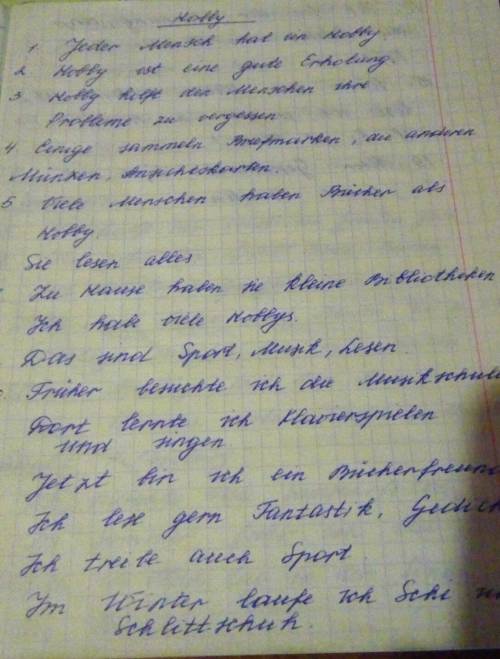 Hobby
1. Jeder Mensch hat ein Hobby.
2 Hobby ist eine gute Erholung.
3 Hobby hilft den Menschen ihre
Probleme zu vergessen
4 Einige sammeln Briefmarken, die anderen
Münzen, Ansichtskarten.
5 Viele Menschen haben Bücher als
Hobby.
Sie lesen alles
Zu Hause haben sie kleine Bibliotheken
Ich habe viele Hobbys.
Das sind Sport, Musik, Lesen.
Früher besuchte ich die Musikschule
Dort lernte ich Klavierspielen
und singen
Jetzt bin ich ein Bücherfreund
Ich lese gern Fantastik,
Ich treibe auch Sport.
Im Winter laufe ich Schi
Schlittschuh.